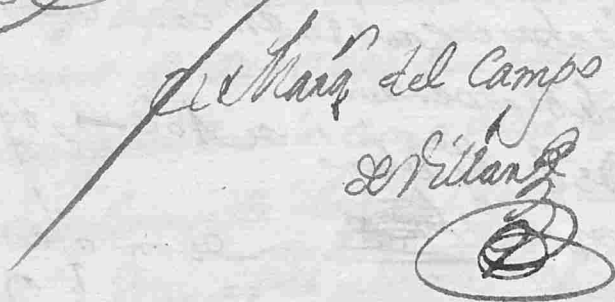 El Marq^s del Campo
de Villar